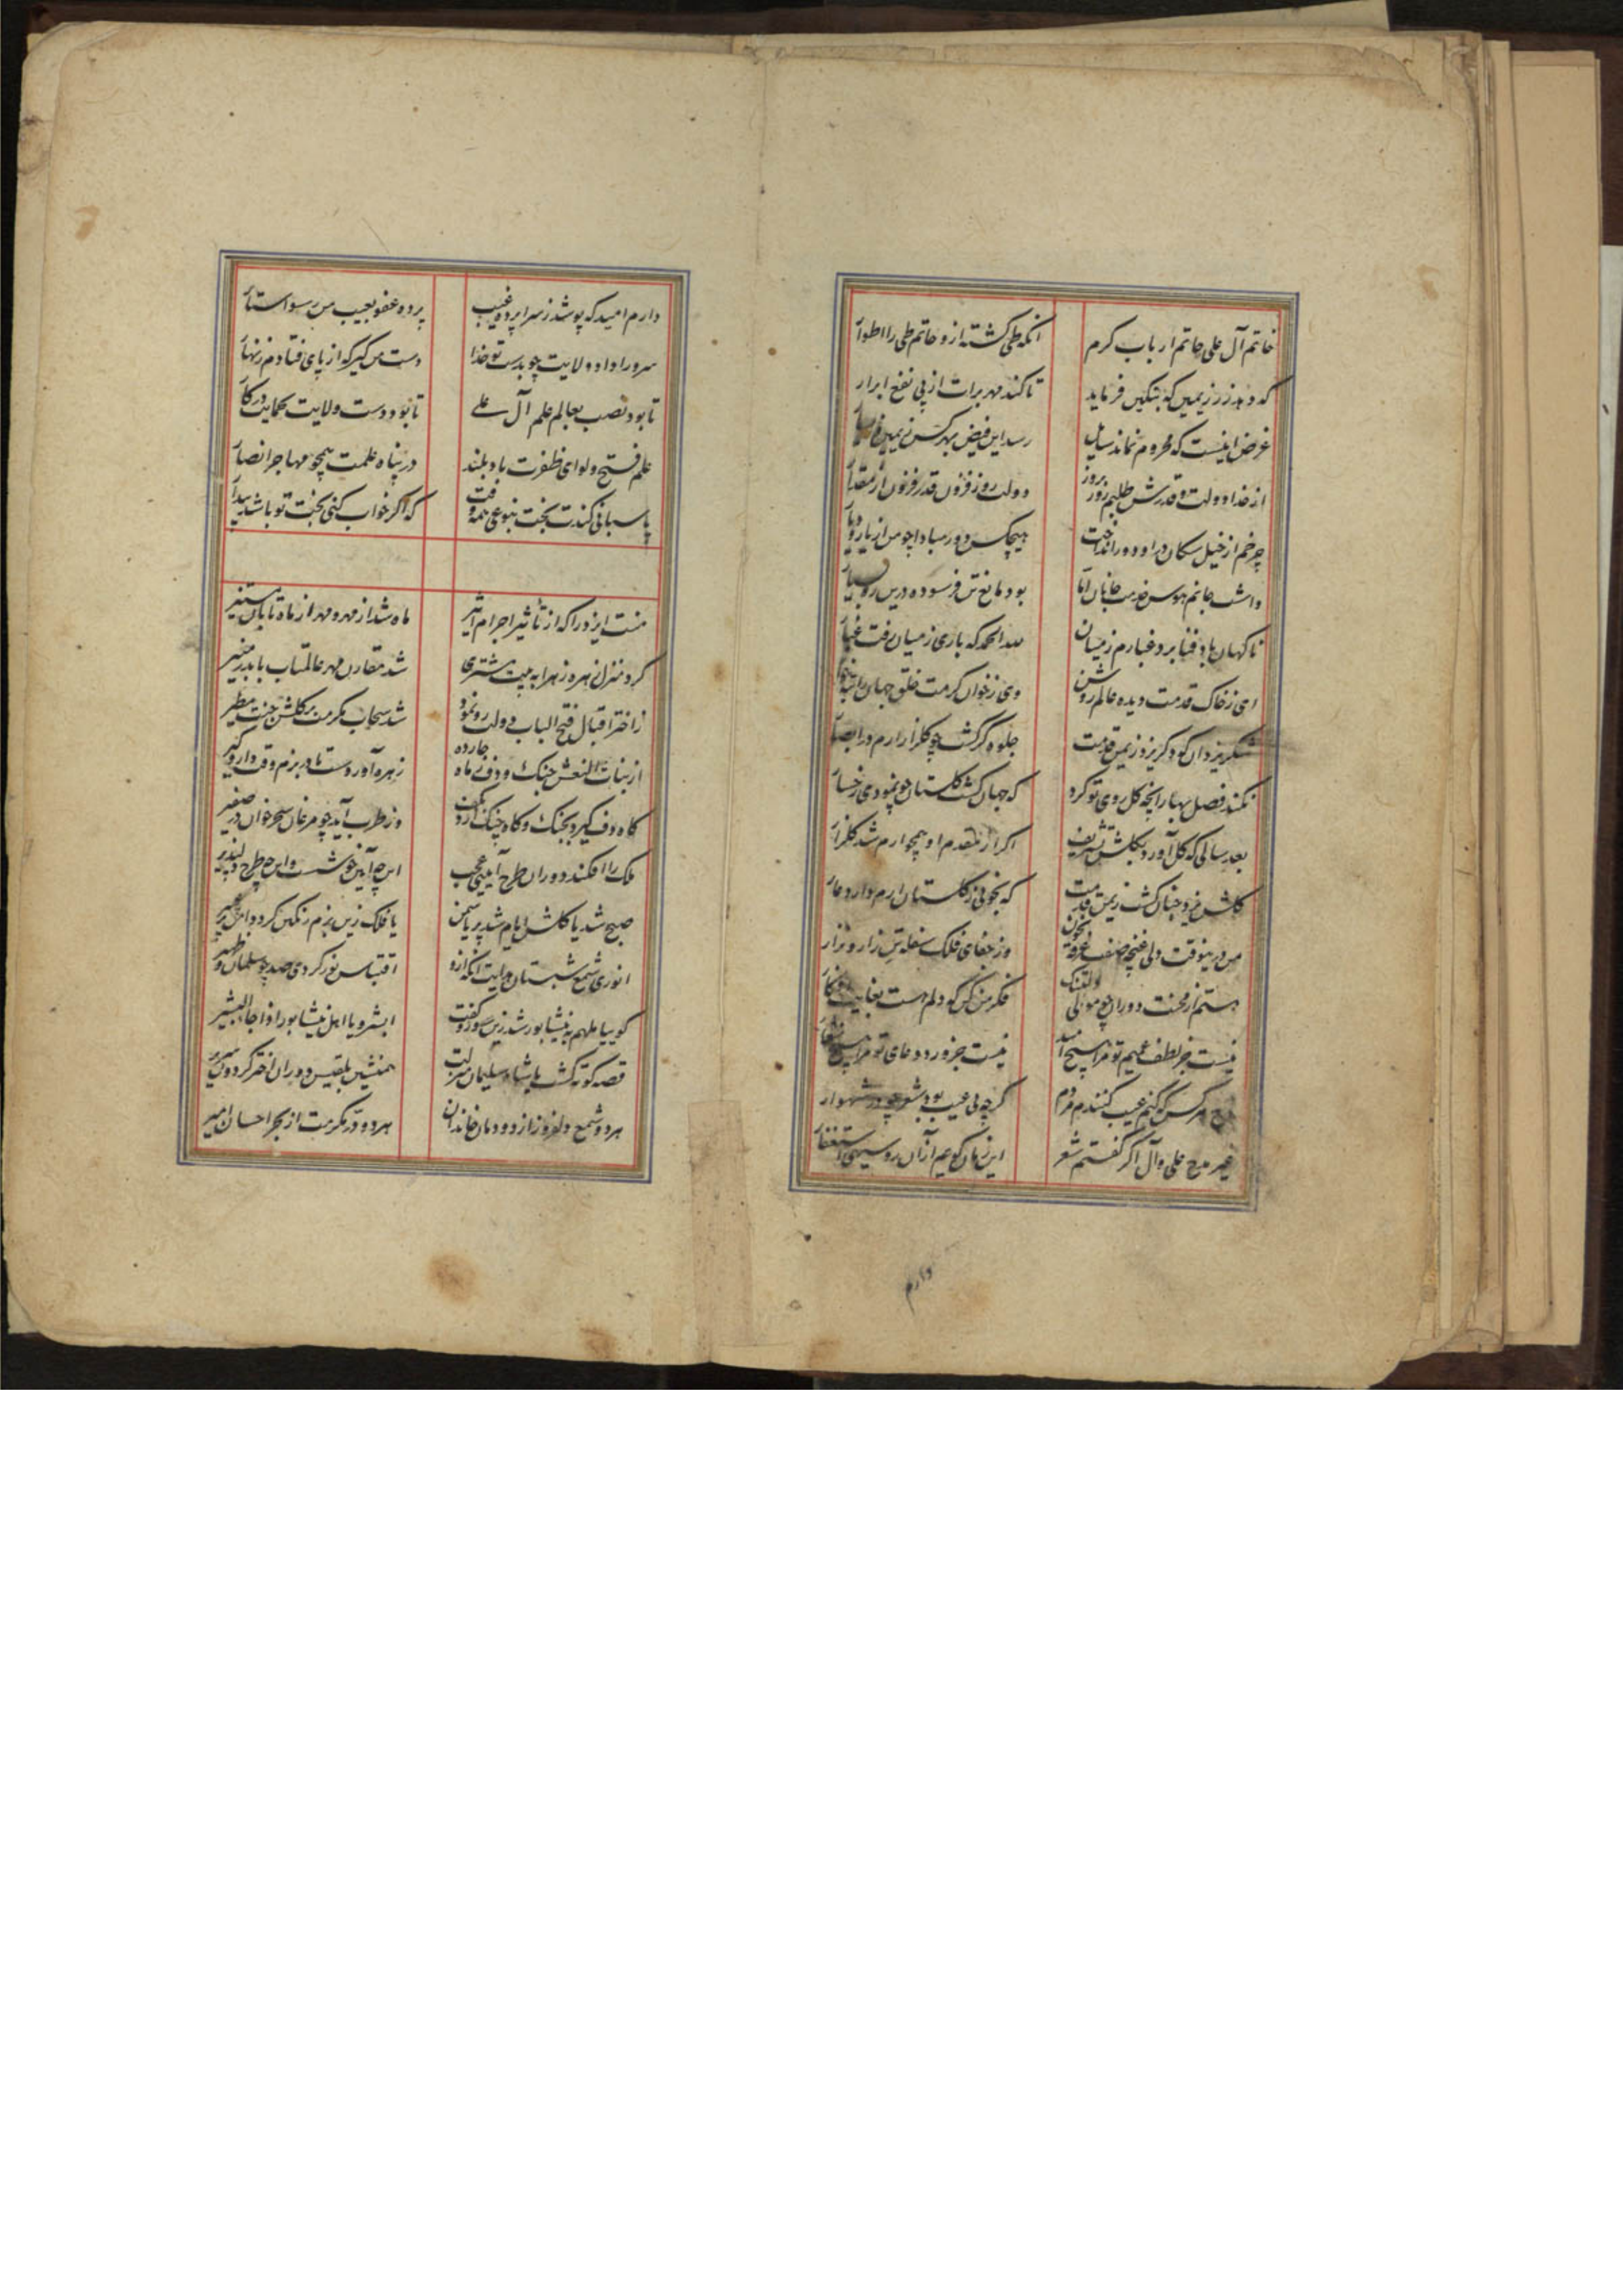 خاتم آل علی حاتم ارباب کرم
انکه طی کشته ازو حاتم طی را اطوار
که دهد زر زیمین که بتکین فرماید
تا کند مهر برات از پی نفع ابرار
غرض اینست که محروم نماند سایل
رسد این فیض بهر کس زیمین و یسار
از خدا دولت و قدرش طلبم روز بروز
دولت روز فزون قدر فزون از مقدار
چرخم از خیل سکان در او دور انداخت
هیچکس دور مبادا چو من از یار و دیار
داشت جانم هوس خدمت جانان اما
بود مانع تن فرسوده درین ره بسیار
ناکهان باد فنا برد غبارم ز میان
لله الحمد که باری ز میان رفت غبار
ای ز خاک قدمت دیده عالم روشن
وی ز خوان کرمت خلق جهان را
شکر یزدان که دکر یزد زیمن قدمت
جلوه کر کشت چو کلزار ارم در ابصار
نکند فصل بهار انچه کل روی تو کرد
که جهان کشت کلستان چو نمودی رخسار
بعد سالی که کل آورد بکلشن تشریف
اکر از مقدم او همچو ارم شد کلزار
کلشن یزد چنان کشت زیمن قدمت
که بخوبی ز کلستان ارم دارد عار
من درینوقت ولی غنچه صفت غرقه بخون
وز جفای فلک سفله تن زار و نزار
هستم از محنت دوران چو مو دلتنک
فکر من کن که دلم هست بغایت افکار
نیست جز لطف عمیم تو مرا هیچ امید
نیست جز ورد دعای تو مرا هیچ شعار
مدح هر کس که کنم عیب کنندم مردم
کرچه بی عیب بود شعر چو در شهوار
غیر مدح علی و آل اکر کفتم شعر
این زمان کویم از آن روسیهی استغفار
دارم
دارم امید که پوشد ز سراپرده غیب
پرده عفو بعیب من رسوا ستار
سرورا داد ولایت چو بدست تو خدا
دست من کیر که از پای فتادم زنهار
تا بود نصب بعالم علم آل علی
تا بود دست ولایت بحمایت در کار
علم فتح و لوای ظفرت باد بلند
در پناه علمت همچو مهاجر انصار
پاسبانی کندت بخت بنوعی همه وقت
که اکر خواب کنی بخت تو باشد بیدار
منت ایزد را که از تأثیر اجرام اثیر
ماه شد از مهر و مهر از ماه تابان مستنیر
کرد منزل زهره زهرا به بیت مشتری
شد مقارن مهر عالمتاب با بدر منیر
ز اختر اقبال فتح الباب دولت رو نمود
شد سحاب مکرمت بر کلشن جنت مطیر
از بنات النعش چنک و دف ز ماه چارده
زهره آورد دست تا در بزم وقت دار و کیر
کاه دف کیرد بچنک و کاه چنک آرد بکف
وز طرب آید چو مرغان سحرخوان در صفیر
ملک را افکند دوران طرح آیینی عجب
این چه آیین خوشست و این چه طرح دلپذیر
صبح شد یا کلشن ایام شد پر یاسمن
یا فلک زین بزم رنکین کرد دامن پر عبیر
انوری شمع شبستان هدایت آنکه ازو
اقتباس نور کردی صد چو سلمان و ظهیر
کوییا ملهم به نیشابور شد زین سور و کفت
ابشروا یا اهل نیشابور اذ جاء البشیر
قصه کوته کشت با شاه سلیمان منزلت
همنشین بلقیس دوران اختر کردون سریر
هر دو شمع دلفروز از دودمان خاندان
هر دو در مکرمت از بحر احسان امیر